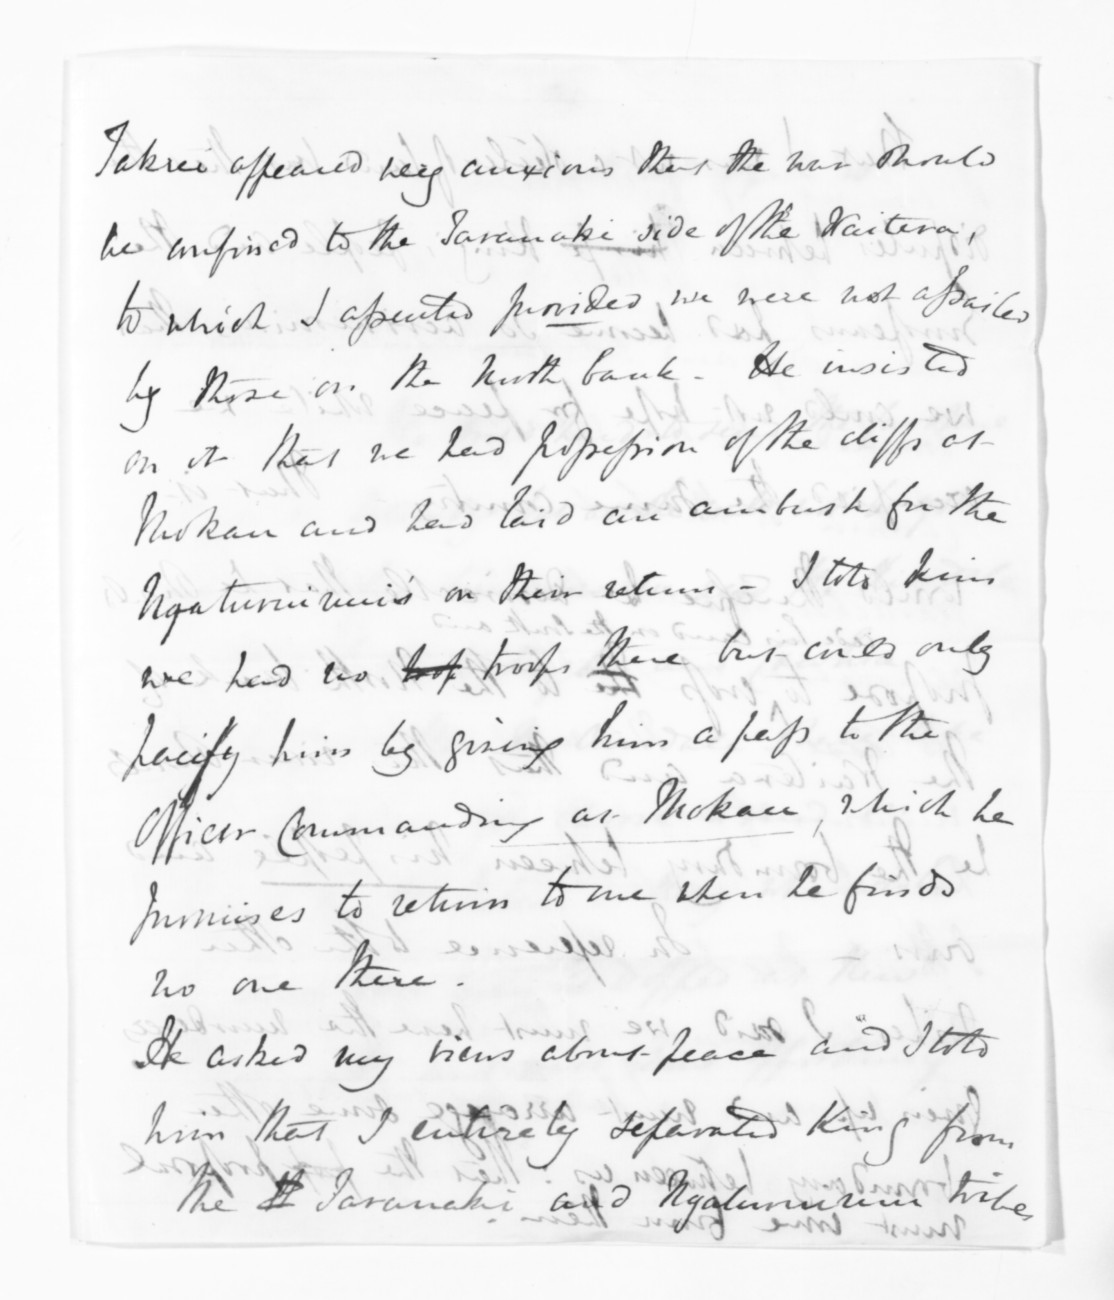 Takrei appeared very anxious that the war should
be confined to the Taranaki side of the Waitera,
to which I assented provided we were not assailed
by those on the North bank - He insisted
on it that we had possession of the cliffs at
Mokau and had laid an ambush for the
Ngaturuinui's on their return - I told him
we had no troops there but could only
pacify him by giving him a pass to the
Officer Commanding at Mokau, which he
promises to return to me when he finds
no one there.
He asked my views about peace and I told
him that I entirely separated King from
the Taranaki and Ngaturuinui tribes